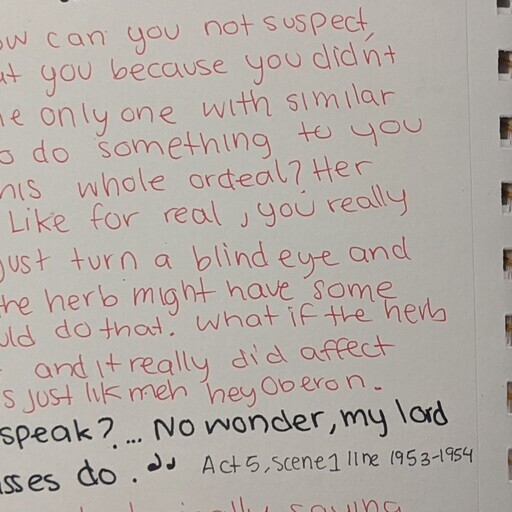 ow can you not suspect,
at you because you didn't
e only one with similar
o do something to you
his whole ordeal? Her
Like for real, you really
just turn a blind eye and
the herb might have some
uld do that. What if the herb
and it really did affect
s just lik meh hey Oberon.
speak?... No wonder, my lord
sses do. " Act 5, scene 1 line 1953-1954
saying